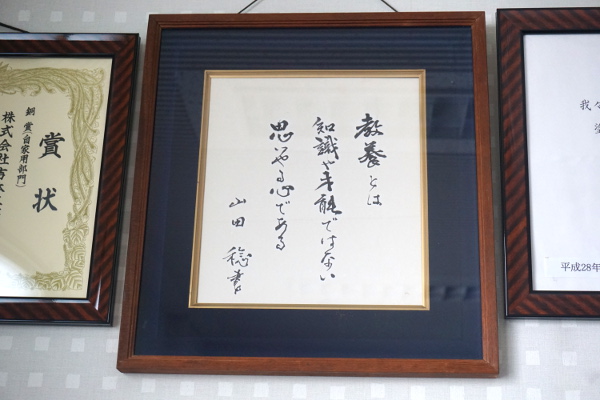 賞状
銅 賞(自家用部門)
株式会社
教養とは
知識や才能ではない
思いやる心である
山田 稔書
我々
平成28年